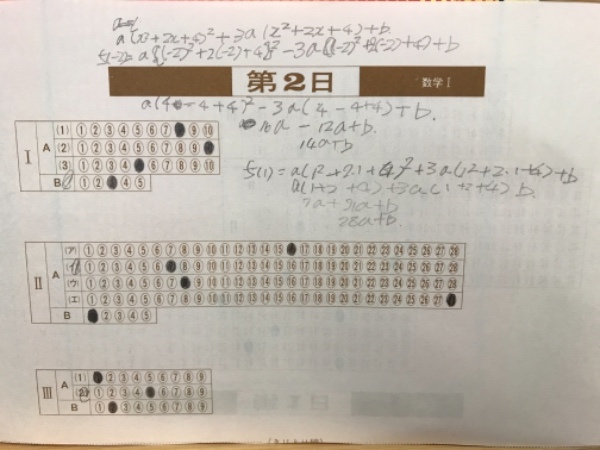 a(x²+2x+4)²+3a(x²+2x+4)+b.
第2日
数学I
a(4-4+4)²-3a(4-4+4)+b.
16a-12a+b.
14a+b
f(1)=a(1²+2・1+4)²+3a(1²+2・1+4)+b
a(1+2+4)+3a(1+2+4) b.
7a+21a+b
28a+b.
I
A
(1) 1 2 3 4 5 6 7 9 10
(2) 1 2 3 4 5 6 7 8 9
(3) 1 2 3 4 6 7 8 9 10
B 1 2 4 5
II
A
(ア) 1 2 3 4 5 6 7 8 9 10 11 12 13 14 15 17 18 19 20 21 22 23 24 25 26 27 28
(イ) 1 2 3 4 5 6 8 9 10 11 12 13 14 15 16 17 18 19 20 21 22 23 24 25 26 27 28
(ウ) 1 2 3 4 5 6 7 9 10 11 12 13 14 15 16 17 18 19 20 21 22 23 24 25 26 27 28
(エ) 1 2 3 4 5 6 7 8 9 10 11 12 13 14 15 16 17 18 19 20 21 22 23 24 25 26 27
B 2 3 4 5
III
A
(1) 2 3 4 5 6 7 8 9
(2) 1 2 3 4 6 7 8 9
B 1 3 4 5 6 7 8 9